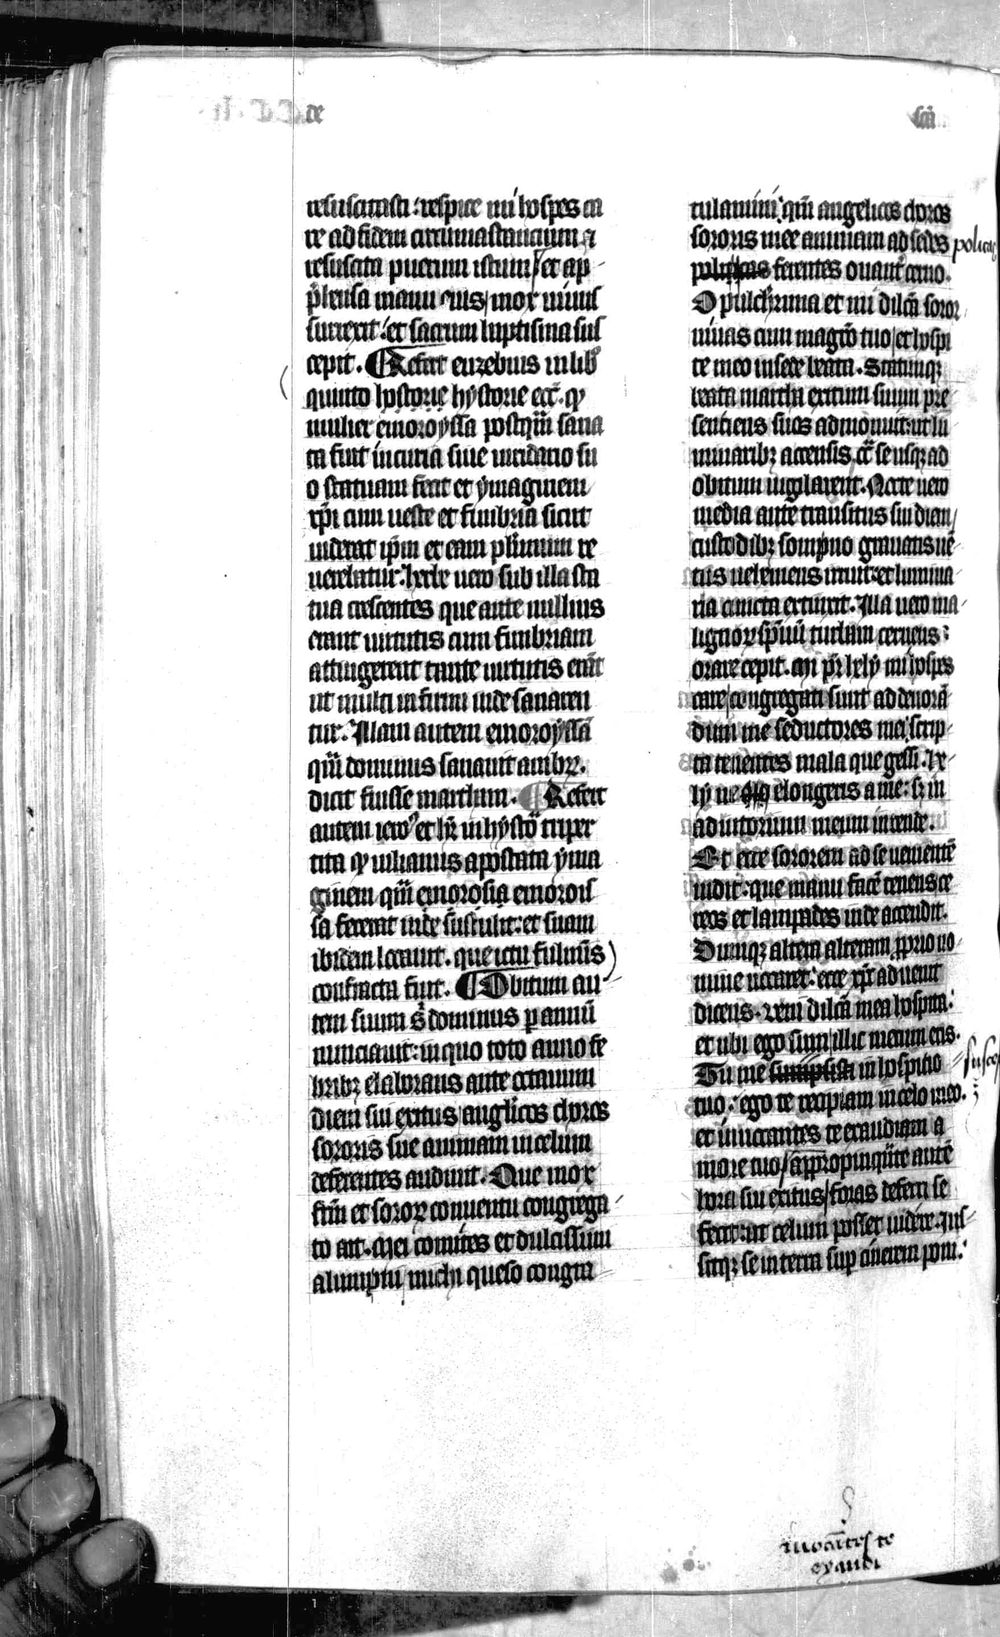 de
sci
resuscitasti: respice mi hospes ca
re ad fidem circumastancium et
resuscita puerum istum/ et ap
p̄hensa manu eius/ mox uiuus
surrexit: et sacrum baptisma sus
cepit. Refert euzebius in lib̄
quinto hystorie ecc̄. q̄
mulier emoroyssa postq̄m sana
ta fuit in curia siue uiridario su
o statuam fecit et ymaginem
xp̄i cum ueste et fimbria sicut
uiderat ip̄m et eam plurimum re
uerebatur. herbe uero sub illa sta
tua crescentes que ante nullius
erant uirtutis cum fimbriam
attingerent tante uirtutis erāt
ut multi infirmi inde sanaren
tur. Illam autem emoroyssā
quā dominus sanauit ambr.
dicit fuisse martham. Refert
autem iero et hr̄ in hystō triper
tita q̄ iulianus apostata yma
ginem quā emorois
sa fecerat inde sustulit: et suam
ibidem locauit. que ictu fulmis
confracta fuit. Obitum au
tem suum s̄ dominus p annū
nunciauit: in quo toto anno fe
bribꝫ elaborans ante octauum
diem sui exitus anglicos choros
sororis sue animam in celum
deferentes audiuit. Que mox
frm̄ et soror conuentu congrega
to ait. Mei comites et dulcissimi
alumpni michi queso congra
tulamini: qm̄ angelicos choros
sororis mee animam ad sedes polic
ferentes ouant cerno.
O pulcherrima et mi dilc̄a soror
uiuas cum magrō tuo/ et hospi
te meo in sede beata. Statimqꝫ
beata martha exitum suum pre
sentiens suos admonuit: ut lu
minaribꝫ accensis cr̄ se usqꝫ ad
obitum uigilarent. Nocte uero
media ante transitus sui diem/
custodibꝫ sompno grauatis uē
tus uehemens irruit: et lumina
ria cuncta extinxit. Illa uero ma
lignorꝫ sp̄uū turbam cernens:
orare cepit. Mi pr̄ hely mi hospes
care/ congregati sunt ad deuorā
dum me seductores mei scrip
ta tenentes mala que gessi. He
ly ne elongeris a me: sꝫ in
adiutorium meum intende.
Et ecce sororem ad se uenientē
uidit: que manu facē tenens ce
reos et lampades inde accendit.
Dumqꝫ altera alteram p̱prio no
mine uocaret: ecce xp̄c aduenit
dicens. Veni dilc̄a mea hospita:
et ubi ego sum/ illic mecum eris.
Tu me sumpsisti in hospitio susce
tuo: ego te recipiam in celo meo.
et inuocantes te exaudiam a
more tuo/ appropinquāte autē
hora sui exitus/ foras deferri se
fecit: ut celum posset uidere. Ius
sitqꝫ se in terra sup cinerem poni:
inuocātes te
exaudi